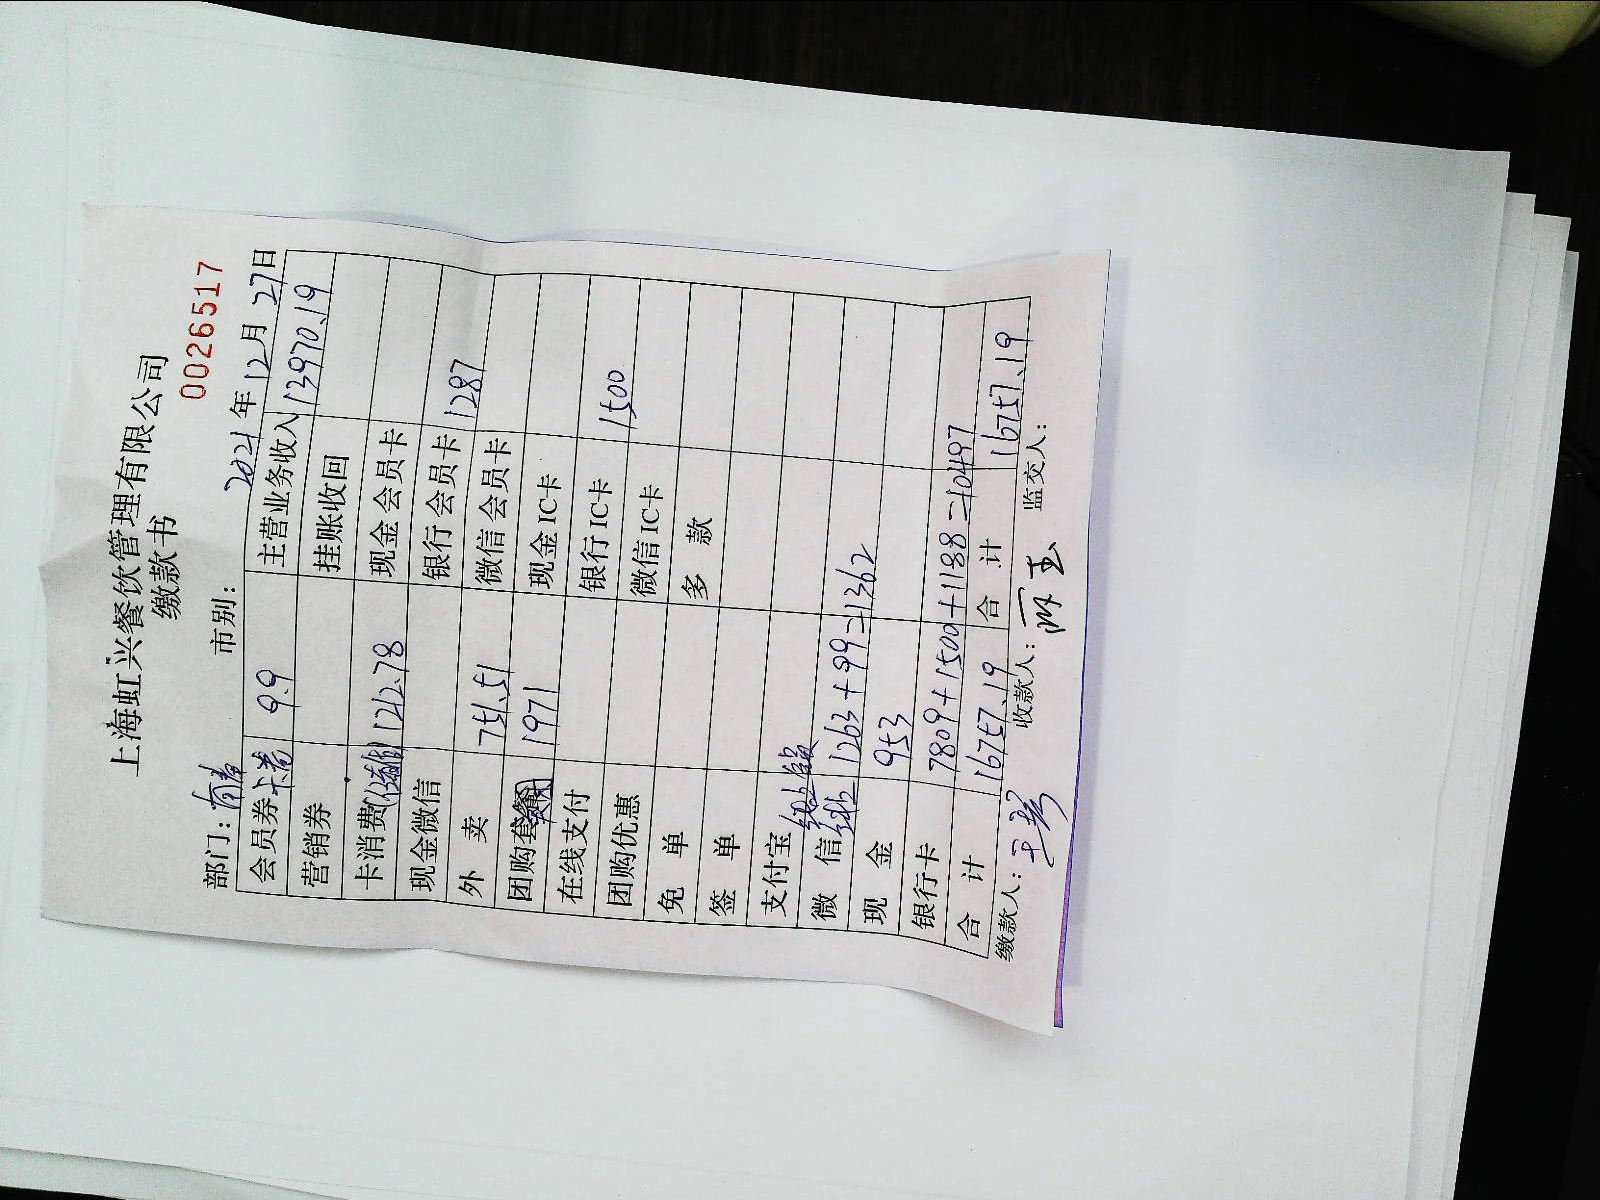 上海虹兴餐饮管理有限公司
缴款书
0026517
部门: 市别: 2021年12月27日
会员券 卡券 9.9 主营业务收入 13970.19
营销券 挂账收回
卡消费 1212.78 现金会员卡
现金微信 银行会员卡 1287
外 卖 751.51 微信会员卡
团购套餐 1971 现金IC卡
在线支付 银行IC卡 1500
团购优惠 微信IC卡
免 单 多 款
签 单
支付宝
微 信 1263+99=1362
现 金 953
银行卡 7809+1500+1188=10497
合 计 16757.19 合 计 16757.19
缴款人: 收款人: 监交人: